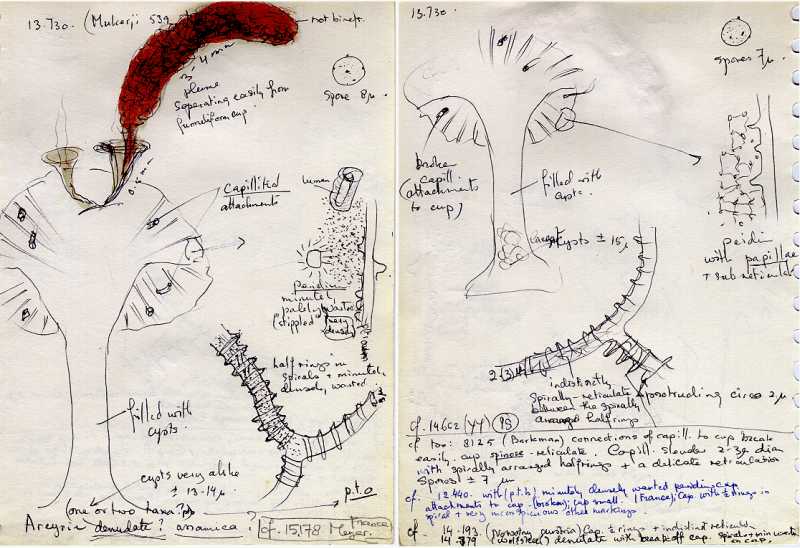 13.730. (Mukerji 539
not binefr.
± 4 mm
plume
separating easily from
funneliform cup.
Spore 8 µ
0.5 mm
Capillitial
attachments
lumen
peridium
minutely
warted
("stippled")
very
densely
half rings in
spirals + minutely,
densely, warted.
filled with
cysts.
cysts very alike
± 13-14 µ
p.t.o
(one or two taxa?)
Arcyria denudata? annamica?
cf. 15,178
Meyer.
France
13.730
spores 7 µ
broken
capill.
(attachments
to cup)
filled with
cysts.
cysts ± 15 µ
peridium
with papillae
+ sub reticulum
2-3 µ
indistinctly
spirally-reticulate protruding circa 2 µ
between the spirally
arranged halfrings
cf. 14602 (YY) (PS)
cf too: 8125 (Barkman) connections of capill. to cup break
easily. cup spinose-reticulate. Capill. slender 2-3 diam
with spirally arranged halfrings + a delicate reticulation
Spores ± 7 µ
cf. 12.440. with (p.t.b) minutely densely warted peridium cup
attachments to cap. (broken), cup small (France). Cap. with ½ rings in
spiral + very inconspicuous other markings.
cf. 14.193 Cap. ½ rings + indistinct reticulum
14.779 denudata with break off cap. spirals + min warts
on cap.